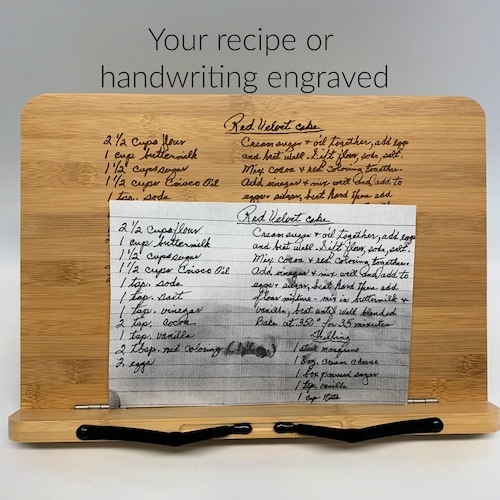 Your recipe or
handwriting engraved
Red Velvet cake
2 1/2 cups flour
1 cup buttermilk
1 1/2 cup sugar
1 1/2 cups Crisco Oil
1 tsp. soda
Cream sugar + oil together, add egg
and beat well. Sift flour, soda, salt.
Mix cocoa + red coloring together.
Add vinegar + mix well and add to
eggs + sugar, beat hard then add
Red Velvet cake
2 1/2 cups flour
1 cup buttermilk
1 1/2 cup sugar
1 1/2 cups Crisco Oil
1 tsp. soda
1 tsp. salt
1 tsp. vinegar
2 tsp. cocoa
1 tsp. vanilla
2 tbsp. red coloring
2 eggs
Cream sugar + oil together, add eggs
and beat well. Sift flour, soda, salt.
Mix cocoa + red coloring together.
Add vinegar + mix well and add to
eggs + sugar, beat hard then add
flour mixture - mix in buttermilk +
vanilla, beat until well blended
Bake at 350° for 35 minutes
Filling
1 stick margarine
1 8 oz. cream cheese
1 box powered sugar
1 tsp vanilla
1 cup nuts